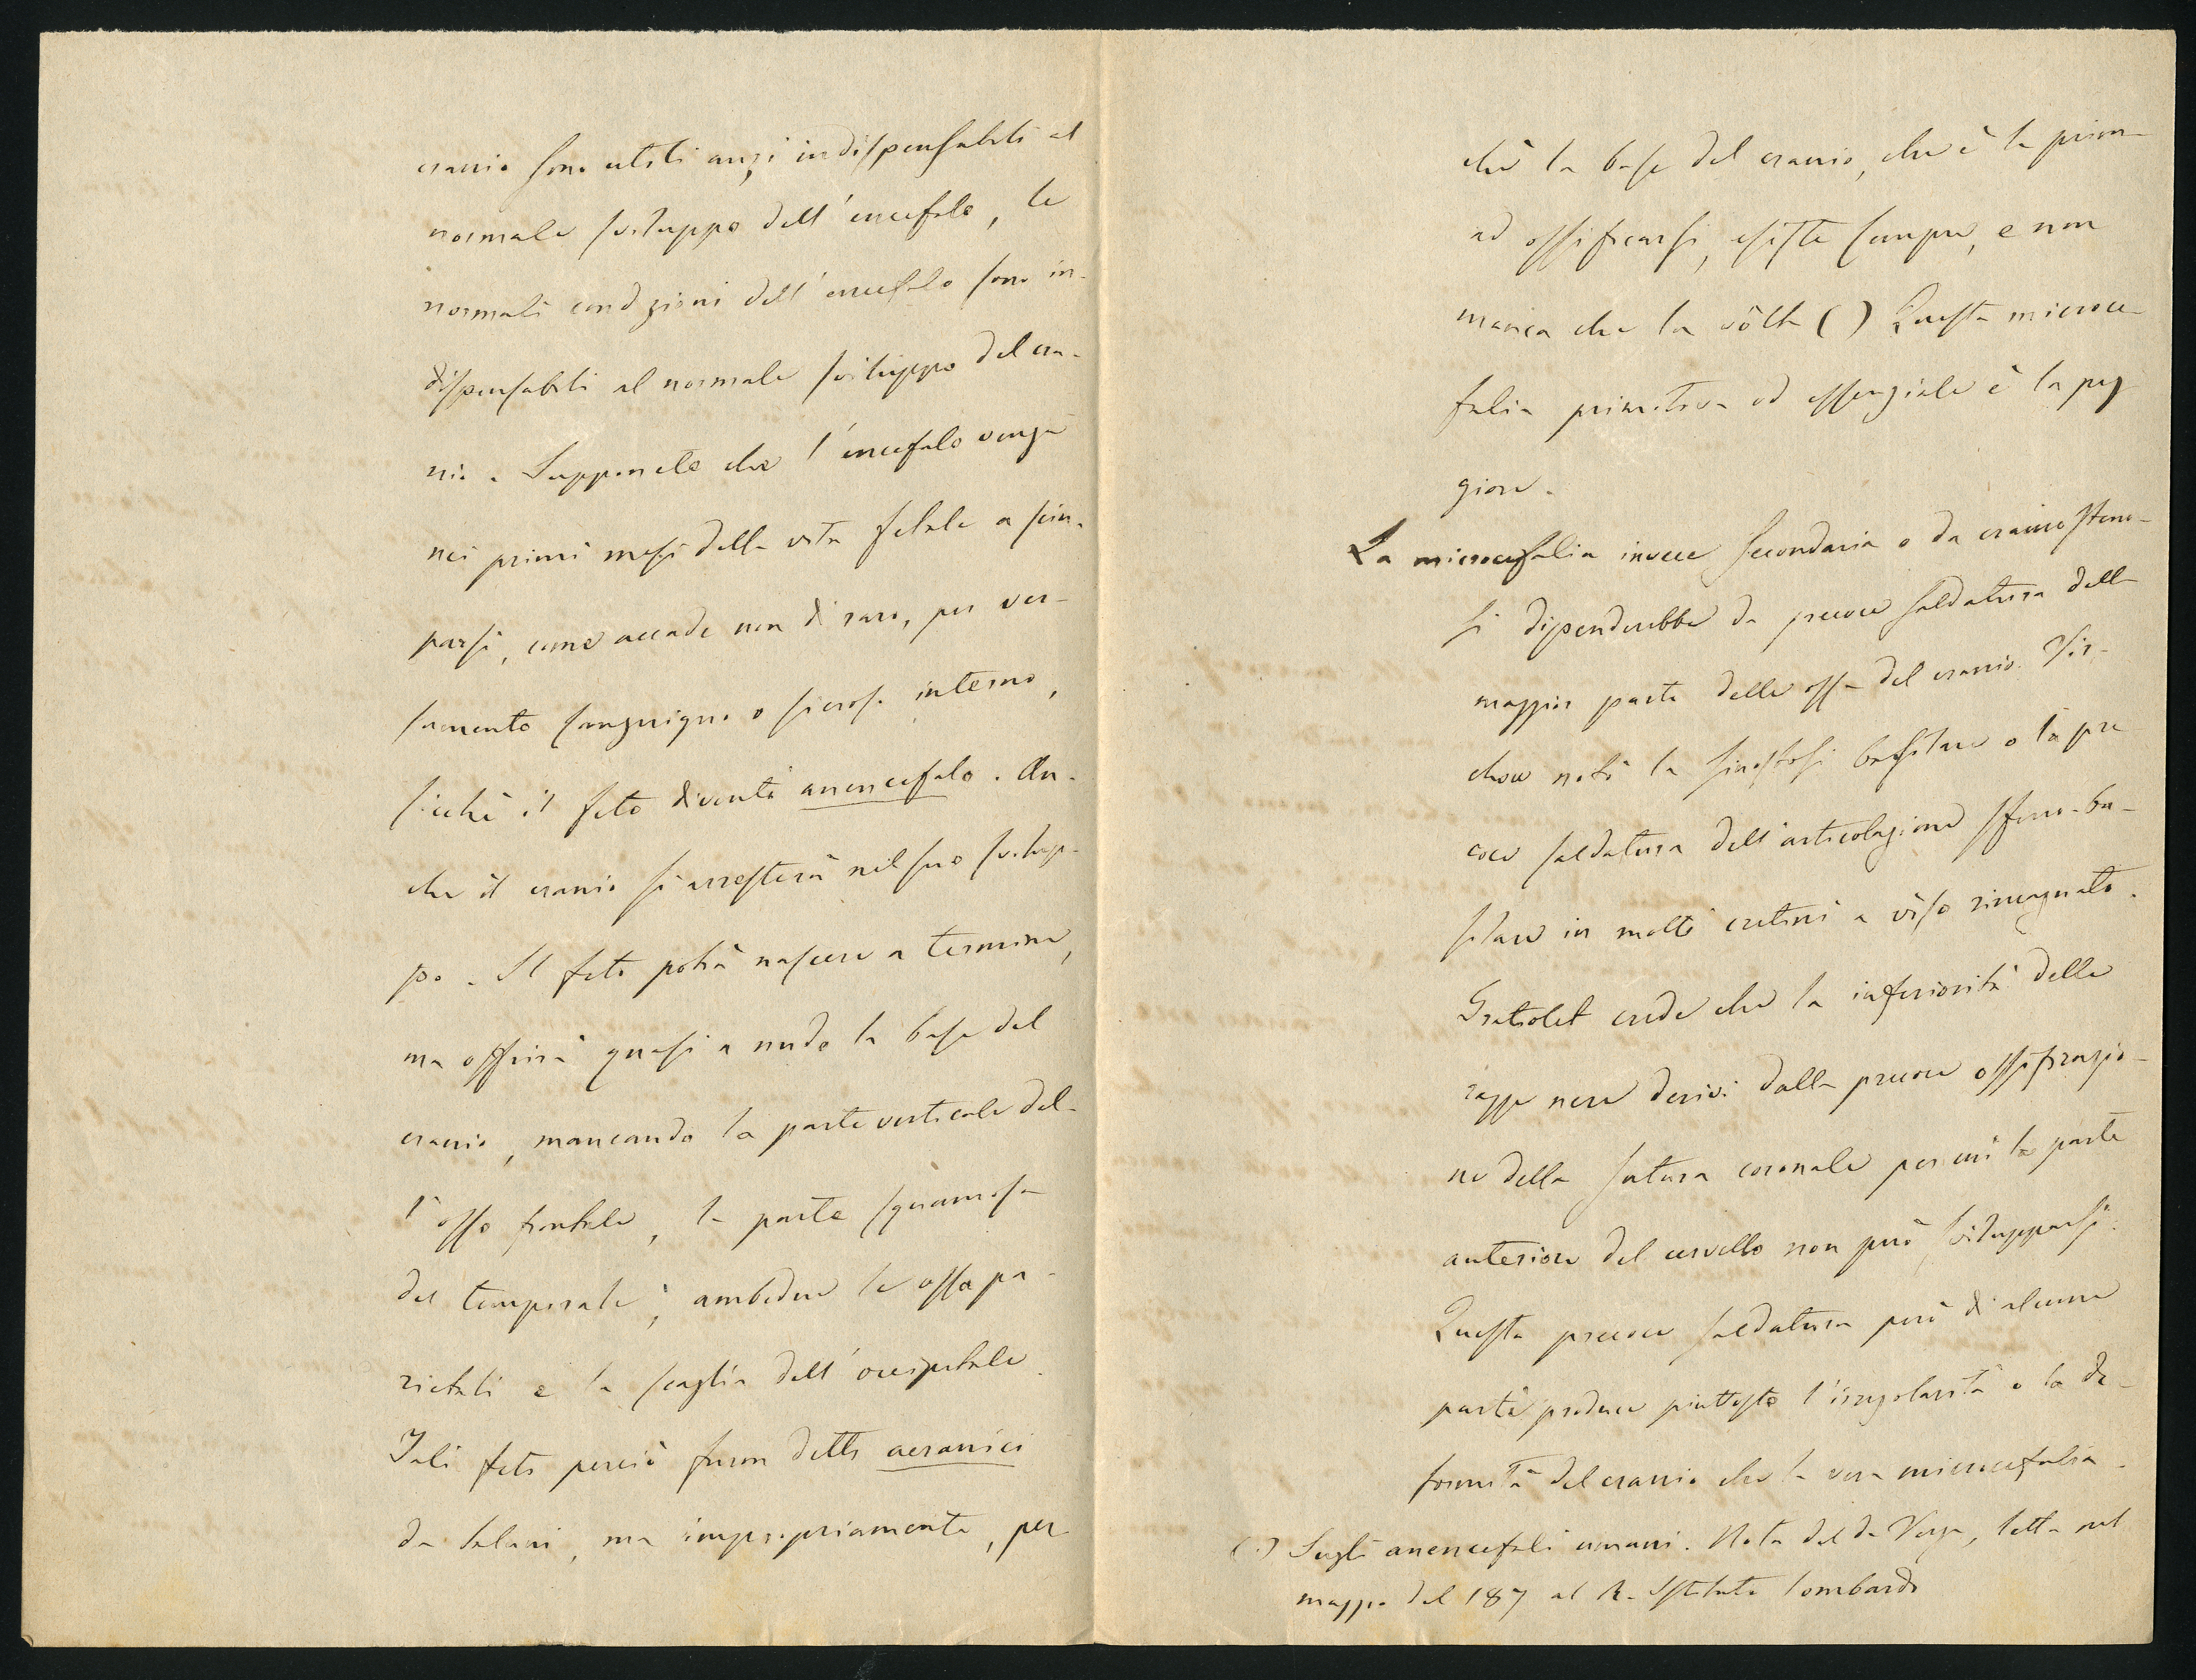 cranio sono utili anzi indispensabili al
normale sviluppo dell'encefalo, le
normali condizioni dell'encefalo sono in-
dispensabili al normale sviluppo del cra-
nio. Supponete che l'encefalo venga
nei primi mesi della vita fetale a sciu-
parsi, come accade non di raro, per ver-
samento sanguigno o sieroso interno,
sicchè il feto diventi anencefalo. An-
che il cranio si arresterà nel suo svilup-
po. Il feto potrà nascere a termine,
ma offrirà quasi a nudo la base del
cranio, mancando la parte verticale del-
l'osso frontale, la parte squamosa
del temporale, ambedue le ossa pa-
rietali e la scaglia dell'occipitale.
Tali feti perciò furon detti acranici
da taluni, ma impropriamente, per
chè la base del cranio, che è la prima
ad ossificarsi, esiste sempre, e non
manca che la vôlta () Questa microce-
falia primitiva ed essenziale è la peg
giore.
La microcefalia invece secondaria o da craniosteno-
si dipenderebbe da precoce saldatura della
maggior parte delle ossa del cranio. Vir-
chow notò la sinostosi basilare o la pre
coce saldatura dell'articolazione sfeno-ba-
silare in molti cretini a viso rincagnato.
Gratiolet crede che la inferiorità delle
razze nere derivi dalla precoce ossificazio-
ne della sutura coronale per cui la parte
anteriore del cervello non può svilupparsi.
Questa precoce saldatura però di alcune
parti produce piuttosto l'irregolarità o la de-
formità del cranio che la vera microcefalia.
() Sugli anencefali umani. Nota del dr Verga, letta nel
maggio del 187 al R. Istituto lombardo